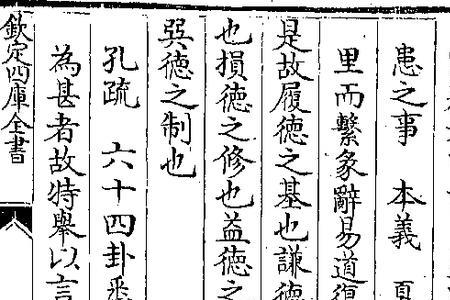 患之事　本義
里而繫彖辭易道復
是故履德之基也謙德
也損德之修也益德之
巽德之制也
孔疏　六十四卦悉
為甚者故特舉以言
欽定四庫全書